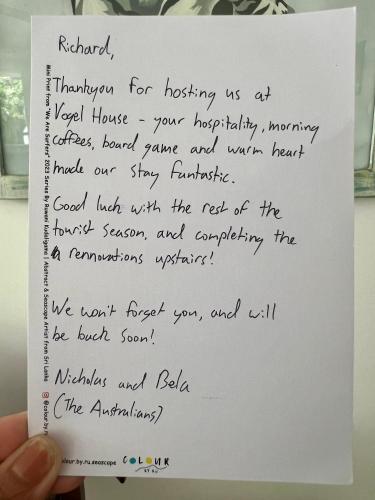 Richard,
Thankyou for hosting us at
Vogel House - your hospitality, morning
coffees, board game and warm heart
made our stay fantastic.
Good luck with the rest of the
tourist season, and completing the
rennovations upstairs!
We won't forget you, and will
be back soon!
Nicholas and Bela
(The Australians)
Mini Print from "We Are Surfers" 2023 Series By Ruwani Kudaligama | Abstract & Seascape Artist from Sri Lanka
@colour.by.r
olour.by.ru.seascape
COLOUR
BY RU